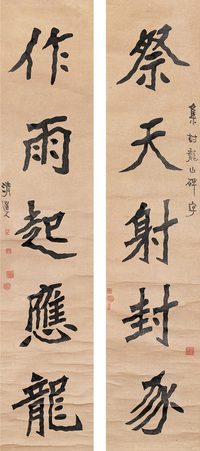 集封龍山碑字
祭天射封豕
作雨起應龍
清道人